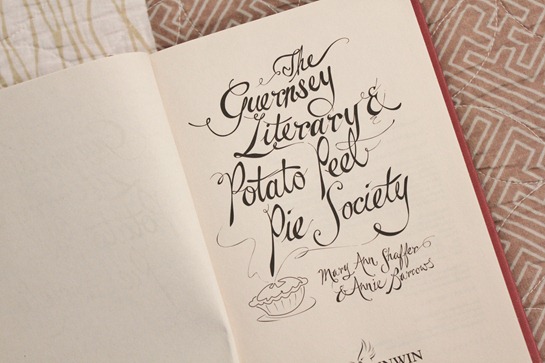 The
Guernsey
Literary &
Potato Peel
Pie Society
Mary Ann Shaffer
& Annie Barrows
NWIN